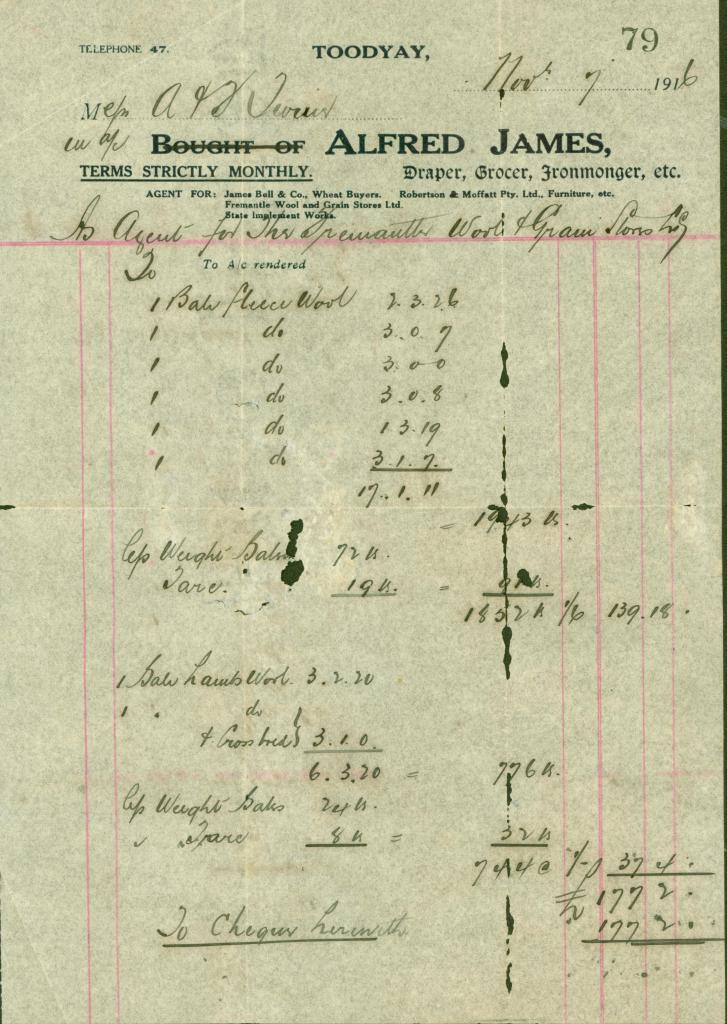 79
TELEPHONE 47.
TOODYAY,
Novr 7 1916
Messrs A & D
in a/c BOUGHT OF ALFRED JAMES,
TERMS STRICTLY MONTHLY. Draper, Grocer, Ironmonger, etc.
AGENT FOR: James Bell & Co., Wheat Buyers. Robertson & Moffatt Pty. Ltd., Furniture, etc.
Fremantle Wool and Grain Stores Ltd.
State Implement Works.
As Agent for The Fremantle Wool & Grain Stores
To To A/c rendered
1 Bale fleece Wool 2.3.26
1 do 3.0.7
1 do 3.0.0
1 do 3.0.8
1 do 1.3.19
1 do 3.1.7
17.1.11
= 1943 lbs.
Weight Bales 72 lbs.
Tare. 19 lbs. = 91 lbs.
1852 lbs 1/6 139.18.
1 Bale Lambs Wool. 3.2.20
1 " do
& Crossbred } 3.1.0.
6.3.20 = 776 lbs.
Weight Bales 24 lbs.
" Tare 8 lbs = 32 lbs
744 @ 1/- 37 4.
177 2.
To Cheque herewith 177 2.